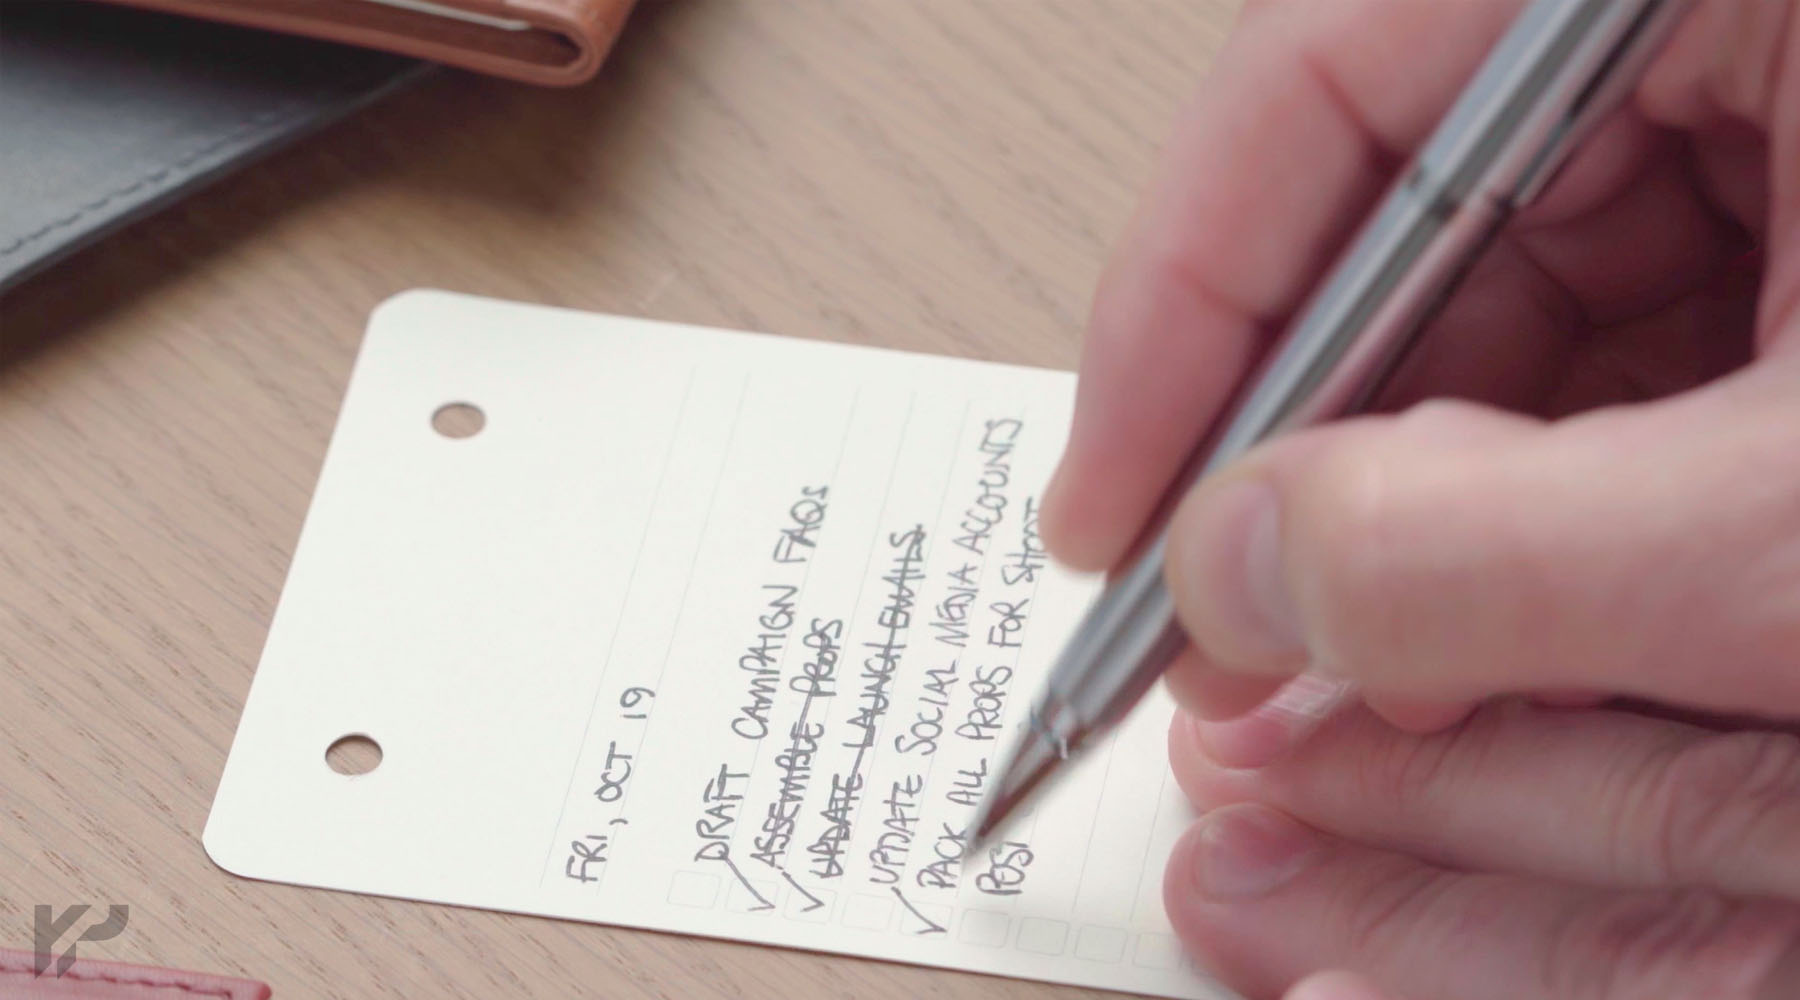 FRI, OCT 19
DRAFT CAMPAIGN FAQs
ASSEMBLE PROPS
UPDATE LAUNCH EMAILS
UPDATE SOCIAL MEDIA ACCOUNTS
PACK ALL PROPS FOR SHOOT